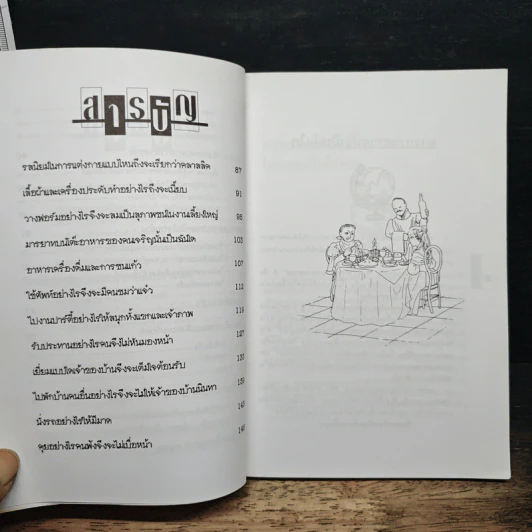 สารบัญ
รสนิยมในการแต่งกายแบบไหนถึงจะเรียกว่าคลาสสิค 87
เสื้อผ้าและเครื่องประดับทำอย่างไรถึงจะเนี้ยบ 91
วางฟอร์มอย่างไรจึงจะสมเป็นสุภาพชนในงานเลี้ยงใหญ่ 98
มารยาทบนโต๊ะอาหารของคนเจริญนั้นเป็นฉันใด 103
อาหารเครื่องดื่มและการชนแก้ว 107
ใช้ศัพท์อย่างไรจึงจะมีคนชมว่าแจ๋ว 112
ไปงานปาร์ตี้อย่างไรให้สนุกทั้งแขกและเจ้าภาพ 119
รับประทานอย่างไรคนจึงไม่หันมองหน้า 127
เยี่ยมแบบใดเจ้าของบ้านจึงจะเต็มใจต้อนรับ 133
ไปพักบ้านคนอื่นอย่างไรจึงจะไม่ให้เจ้าของบ้านนินทา
นั่งรถอย่างไรให้มีมาด
คุยอย่างไรคนฟังจึงจะไม่เบื่อหน้า